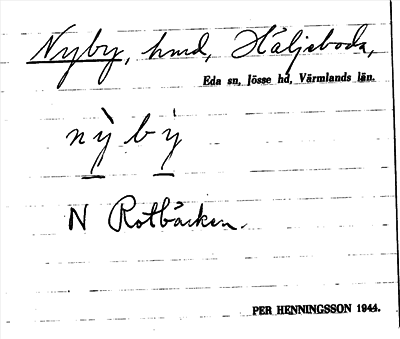 Nyby, hmd, Häljeboda,
Eda sn, Jösse hd, Värmlands län.
nỳ bỳ
N Rotbäcken.
PER HENNINGSSON 1944.